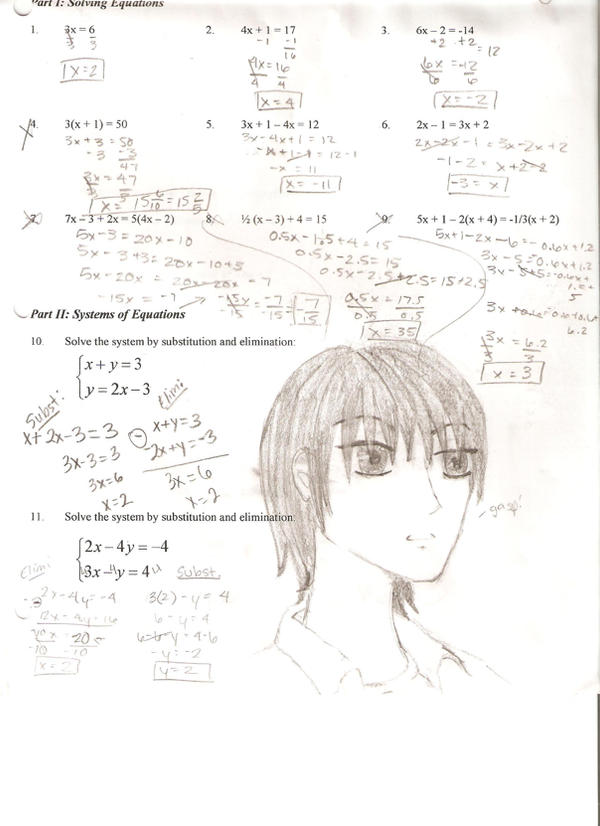 Part I: Solving Equations
1. 3x = 6
3 3
x = 2
2. 4x + 1 = 17
-1 -1
16
4x = 16
4 4
x = 4
3. 6x – 2 = -14
+2 +2
= 12
6x = -12
6 6
x = -2
4. 3(x + 1) = 50
3x + 3 = 50
-3 -3
47
3x = 47
x = 15 6/10 = 15 2/5
5. 3x + 1 – 4x = 12
3x - 4x + 1 = 12
-x + 1 - 1 = 12 - 1
-x = 11
x = -11
6. 2x – 1 = 3x + 2
2x - 2x - 1 = 3x - 2x + 2
-1 - 2 = x + 2 - 2
-3 = x
7. 7x – 3 + 2x = 5(4x – 2)
5x - 3 = 20x - 10
5x - 3 + 3 = 20x - 10 + 3
5x - 20x = 20x - 20x - 7
-15x = -7
-15x = -7
-15 -15
-7
15
8. ½ (x – 3) + 4 = 15
0.5x - 1.5 + 4 = 15
0.5x - 2.5 = 15
0.5x - 2.5 + 2.5 = 15 + 2.5
0.5x = 17.5
0.5 0.5
x = 35
9. 5x + 1 – 2(x + 4) = -1/3(x + 2)
5x + 1 - 2x - 6 = -0.6x + 1.2
3x - 5 = 0.6x + 1.2
3x = 6.2
3 3
x = 3
Part II: Systems of Equations
10. Solve the system by substitution and elimination:
x + y = 3
y = 2x – 3
Subst:
x + 2x - 3 = 3
3x - 3 = 3
3x = 6
x = 2
Elimi:
x + y = 3
-2x + y = -3
3x = 6
x = 2
gasp!
11. Solve the system by substitution and elimination:
2x – 4y = –4
3x – y = 4
Elimi:
2x - 4y = -4
12x - 4y = 16
x = 2
Subst.
3(2) - y = 4
6 - y = 4
6 - 6 - y = 4 - 6
-y = -2
y = 2